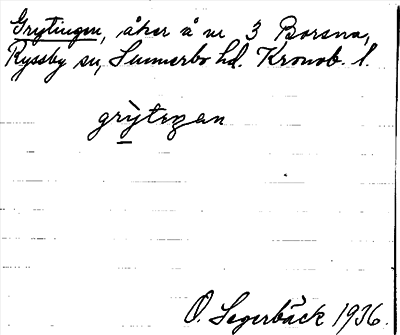 Grytingen, åker å nr 3 Borsna,
Ryssby sn, Sunnerbo hd. Kronob. l.
grỳteŋan
O. Segerbäck 1936.